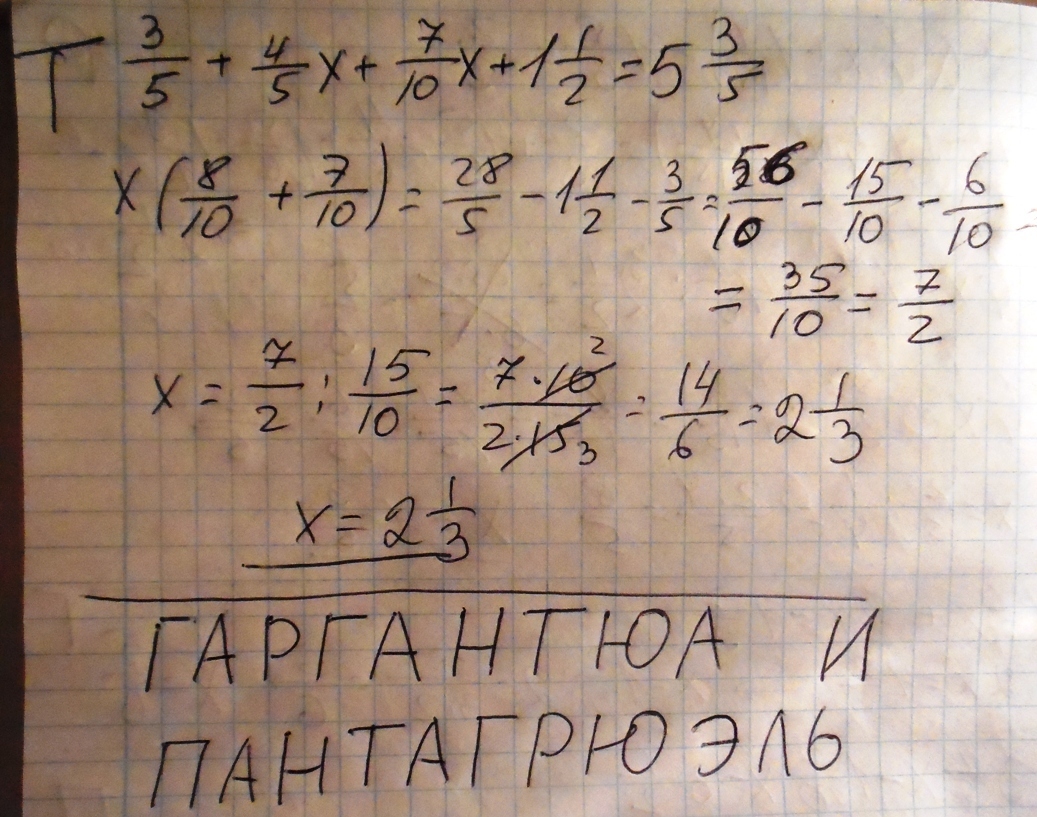 Т 3/5 + 4/5 x + 7/10 x + 1 1/2 = 5 3/5
x (8/10 + 7/10) = 28/5 - 1 1/2 - 3/5 = 56/10 - 15/10 - 6/10 =
= 35/10 = 7/2
x = 7/2 : 15/10 = 7·10 2/2·15 3 = 14/6 = 2 1/3
x = 2 1/3
ГАРГАНТЮА И
ПАНТАГРЮЭЛЬ